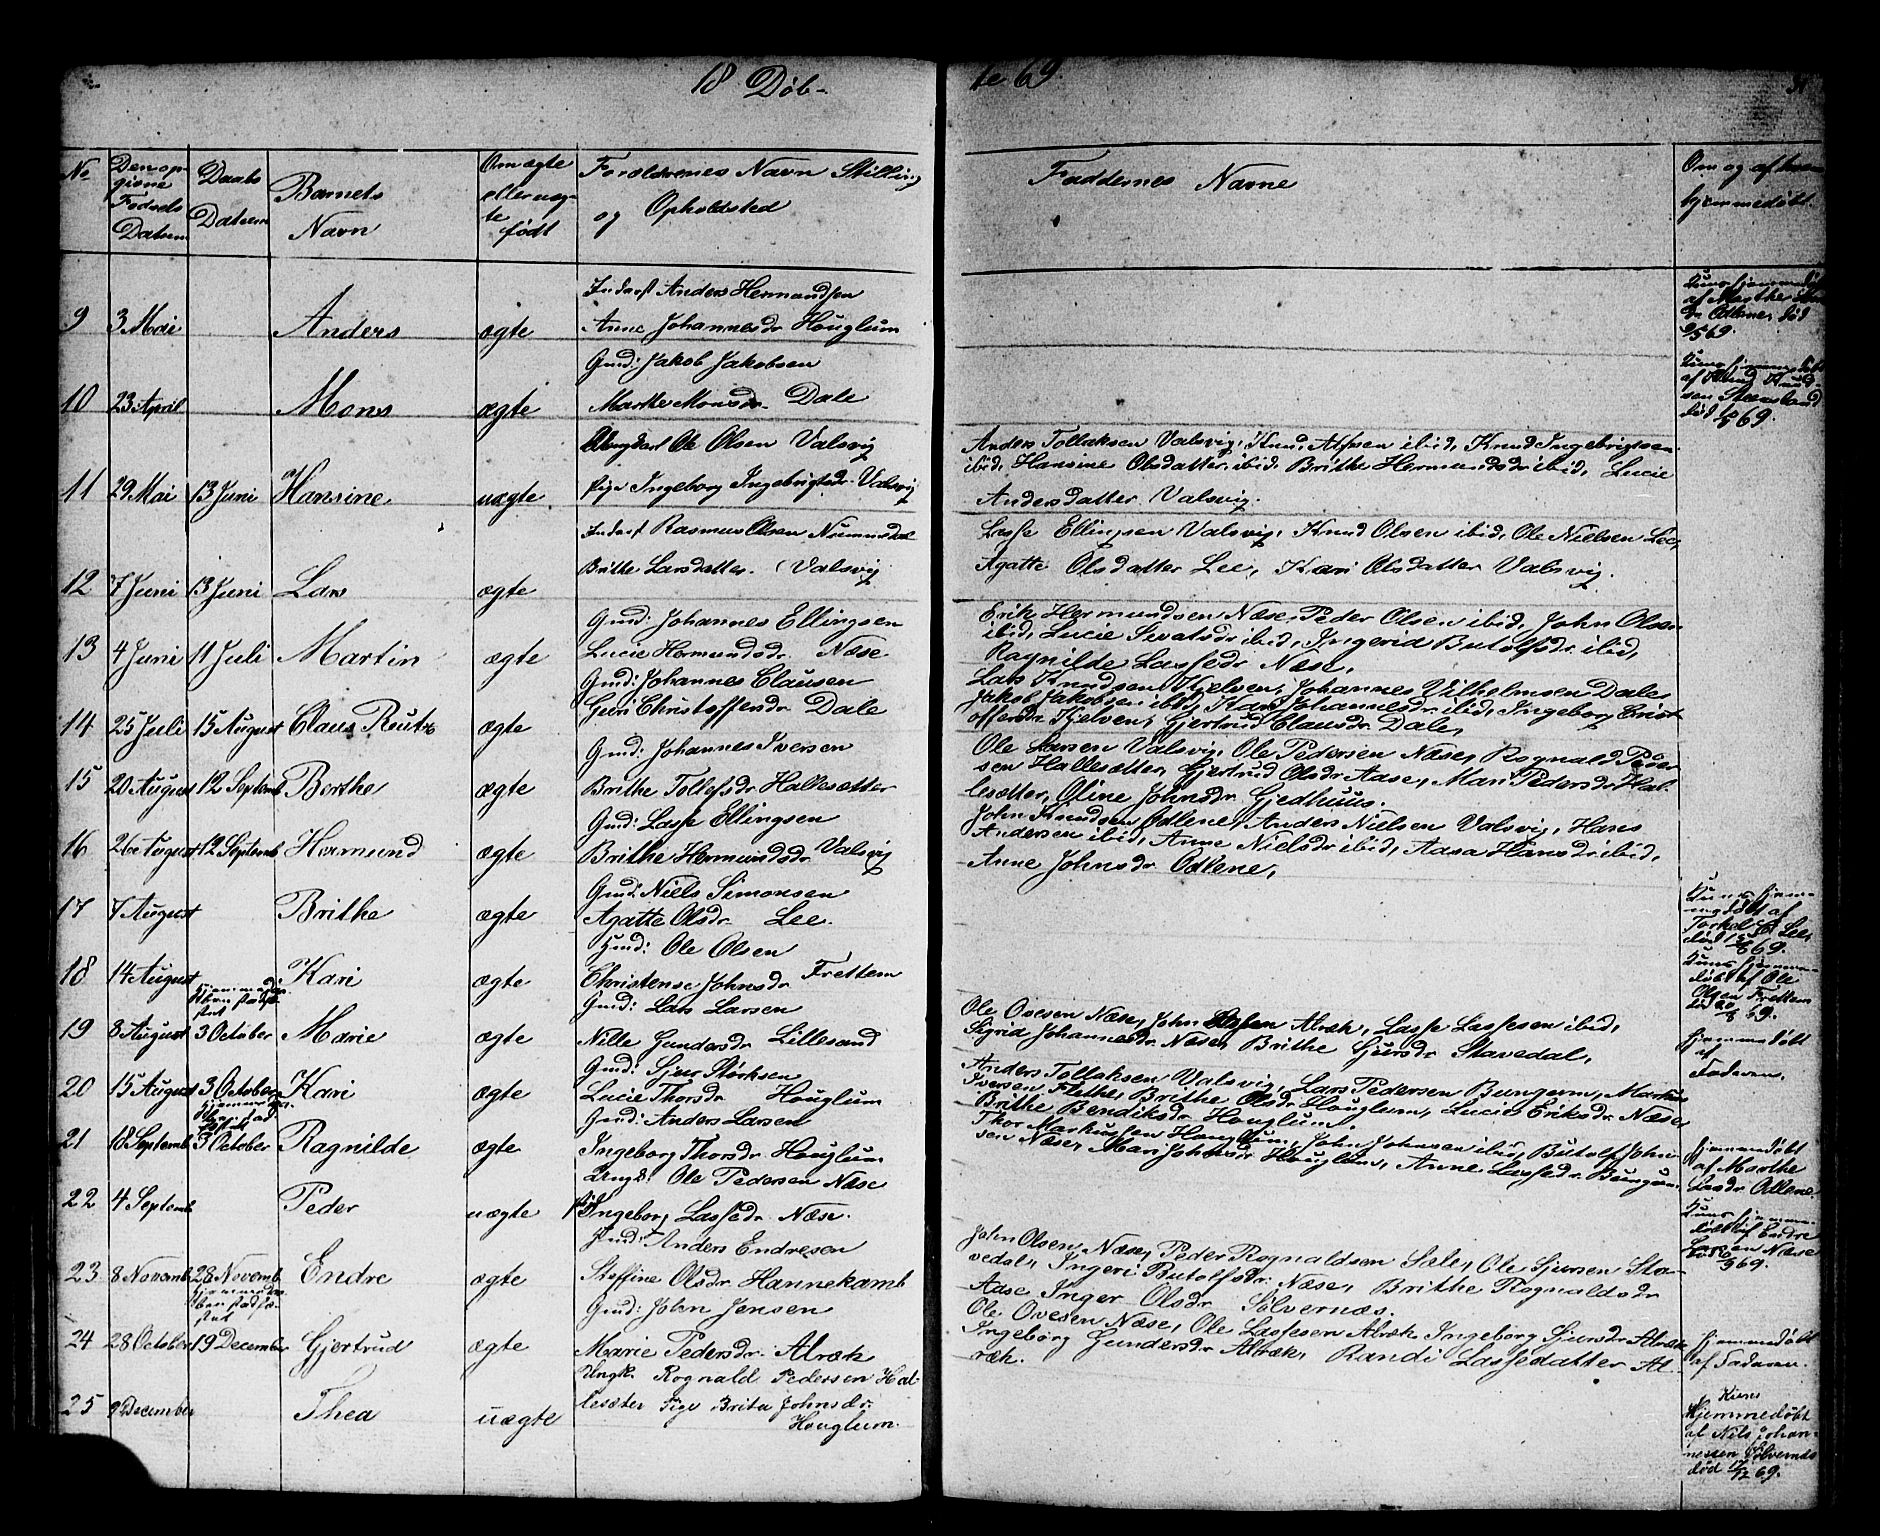 18 Døb-
te 69.
No
Den op-
givne
Fødsels
Datum
Daabs
Datum
Barnets
Navn
Om ægte
eller uæg-
te
født
Forældrenes Navn Stilling
og Opholdsted
Faddernes Navne
Om og af hvem
hjemmedøbt.
9 3 Mai Anders ægte
Inderst Anders Hermundsen
Anne Johannesdr Houglum
Kuns hjemmedøbt
af Marthe
Odlene, død
69.
10 23 April Mons ægte
Gmd: Jakob Jakobsen
Marthe Monsdr. Dale
Kuns hjemmedøbt
af Knud Knud-
sen
død 69.
11 29 Mai 13 Juni Hansine uægte
Ole Olsen Valsvig
Pige Ingeborg Ingebrigtsdr. Valsvig
Anders Tollaksen Valsvig, Knud Alfsen ibid, Knud Ingebrigtsen
ibid, Hansine Olsdatter ibid. Brithe Hermundsdr ibid, Lucie
Andersdatter Valsvig.
12 7 Juni 13 Juni Lars ægte
Inderst Rasmus Olsen Nummedal
Brithe Larsdatter. (Valsvig
Lasse Ellingsen Valsvig, Knud Olsen ibid, Ole Nielsen Lee,
Agatte Olsdatter Lee, Kari Olsdatter Valsvig.
13 4 Juni 11 Juli Martin ægte
Gmd: Johannes Ellingsen
Lucie Hermundsdr Næse
Erik Hermundsen Næse, Peder Olsen ibid, John Olsen
ibid, Lucie Sivatsdr ibid, Ingerid Butolfsdr ibid,
Ragnilde Lassedr Næse,
14 25 Juli 15 August Claus Reutz ægte
Gmd: Johannes Clausen
Guri Christoffersdr Dale
Lars Knudsen Kjelven, Johannes Vilhelmsen Dale,
Jakob Jakobsen ibid, Kari Johannesdr ibid, Ingeborg Crist-
offersdr Kjelven, Gjertrud Clausdr Dale,
15 20 August 12 Septemb Berthe ægte
Gmd: Johannes Iversen
Brithe Tollefsdr Hallesætter
Ole Larsen Valsvig, Ole Pedersen Næse, Rognald Peder-
sen Hallesætter, Gjertrud Olsdr Aase, Mari Pedersdr Hal-
lesætter, Oline Johnsdr Gjedhuus.
16 26de August 12 Septemb Hermund ægte
Gmd: Lasse Ellingsen
Brithe Hermundsdr Valsvig
John Knudsen Odlene, Anders Nielsen Valsvig, Hans
Andersen ibid, Anne Nielsdr ibid, Aasa Hansdr ibid,
Anne Johnsdr Odlene,
17 7 August Brithe ægte
Gmd. Niels Simonsen
Agatte Olsdr Lee.
Kuns hjem-
medøbt af
Torkel Lee,
død 69.
18 14 August Kari ægte
Gmd: Ole Olsen
Christense Johnsdr Frettem
Kuns hjemme-
døbt af Ole
Olsen Frettem
død 69.
19 8 August 3 October Marie ægte
Gmd: Lars Larsen
Nille Gundersdr Lillesand
Ole Ovesen Næse, John Alræk, Lasse Lassesen ibid,
Sigrid Johannesdr Næse, Brithe Gjursdr Stavedal,
hjemmedøbt
af
Faderen.
20 15 August 3 October Kari ægte
Gmd: Sjur Størksen
Lucie Thorsdr Houglum
Anders Tollaksen Valsvig, Lars Pedersen Bungum, Markus
Iversen Flethe, Brithe Olsdr Houglum, Lucie Eriksdr Næse,
Brithe Bendiksdr Houglum.
21 18 Septemb 3 October Ragnilde ægte
Gmd: Anders Larsen
Ingeborg Thorsdr Houglum
Thor Markussen Houglum, John Johnsen ibid, Butolf John-
sen Næse, Mari Johnsdr Houglum, Anne Lassedr Bungum.
hjemmedøbt
af Marthe
Larsdr Odlene
22 4 Septemb Peder uægte
Ungk: Ole Pedersen Næse
Ingeborg Lassedr Næse.
Kuns hjemme-
døbt af Endre
Næse
69.
23 8 Novemb 28 Novemb Endre ægte
Gmd: Anders Endresen
Steffine Olsdr Hannekamb
John Olsen Næse, Peder Rognaldsen Sæle, Ole Sjursen Sta-
vedal, Ingeri Butolfsdr. Næse, Brithe Rognaldsdr
Aase Inger Olsdr Sølvernæs.
24 28 October 19 December Gjertrud ægte
Gmd: John Jensen
Marie Pedersdr. Alræk
Ole Ovesen Næse, Ole Lassesen Alræk Ingeborg Sjursdr Alræk
Ingeborg Gundersdr Alræk, Randi Lassedatter Al-
ræk.
hjemmedøbt
af Faderen.
25 9 December Thea uægte
Ungk. Rognald Pedersen Hal-
lesæter Pige Brita Johnsdr.
Houglum.
Kuns
hjemmedøbt
af Nils Johan-
nessen Sølvernæs
død 17/12 69.